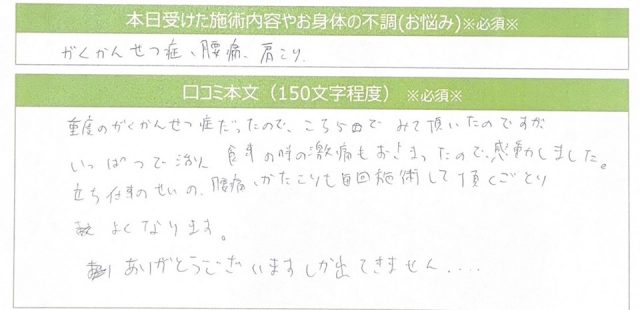 本日受けた施術内容やお身体の不調(お悩み)※必須※
がくかんせつ症、腰痛、肩こり.
口コミ本文（150文字程度） ※必須※
重度のがくかんせつ症だったので、こちらでみて頂いたのですが
いっぱつで治り 食事の時の激痛もおさまったので、感動しました。
立ち仕事のせいの、腰痛、かたこりも毎回施術して頂くごとに
よくなります。
ありがとうございますしか出てきません....